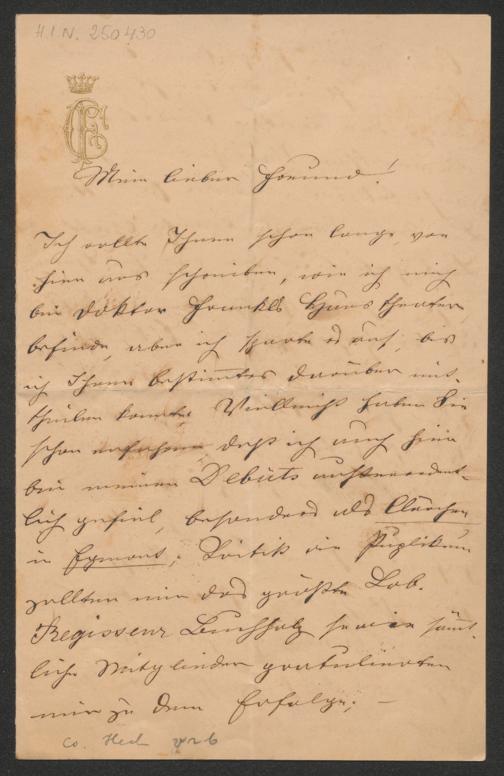 H.I.N. 250430
Mein lieber Freund!
Ich wollte Ihnen schon lange von
hier aus schreiben, wie ich mich
bei Doktor Fraenkls Theater
befinde, aber ich sparte es auf, bis
ich Ihnen bestimmtes darüber mit-
theilen konnte. Vielleicht haben Sie
schon erfahren daß ich auch hier
bei meinen Debüts außerordent-
lich gefiel, besonders als Clärchen
in Egmont; Kritik Puplikum
zollten mir das größte Lob.
Regisseur Buchholz sowie sämmt-
liche Mitglieder gratulirten
mir zu dem Erfolge; —